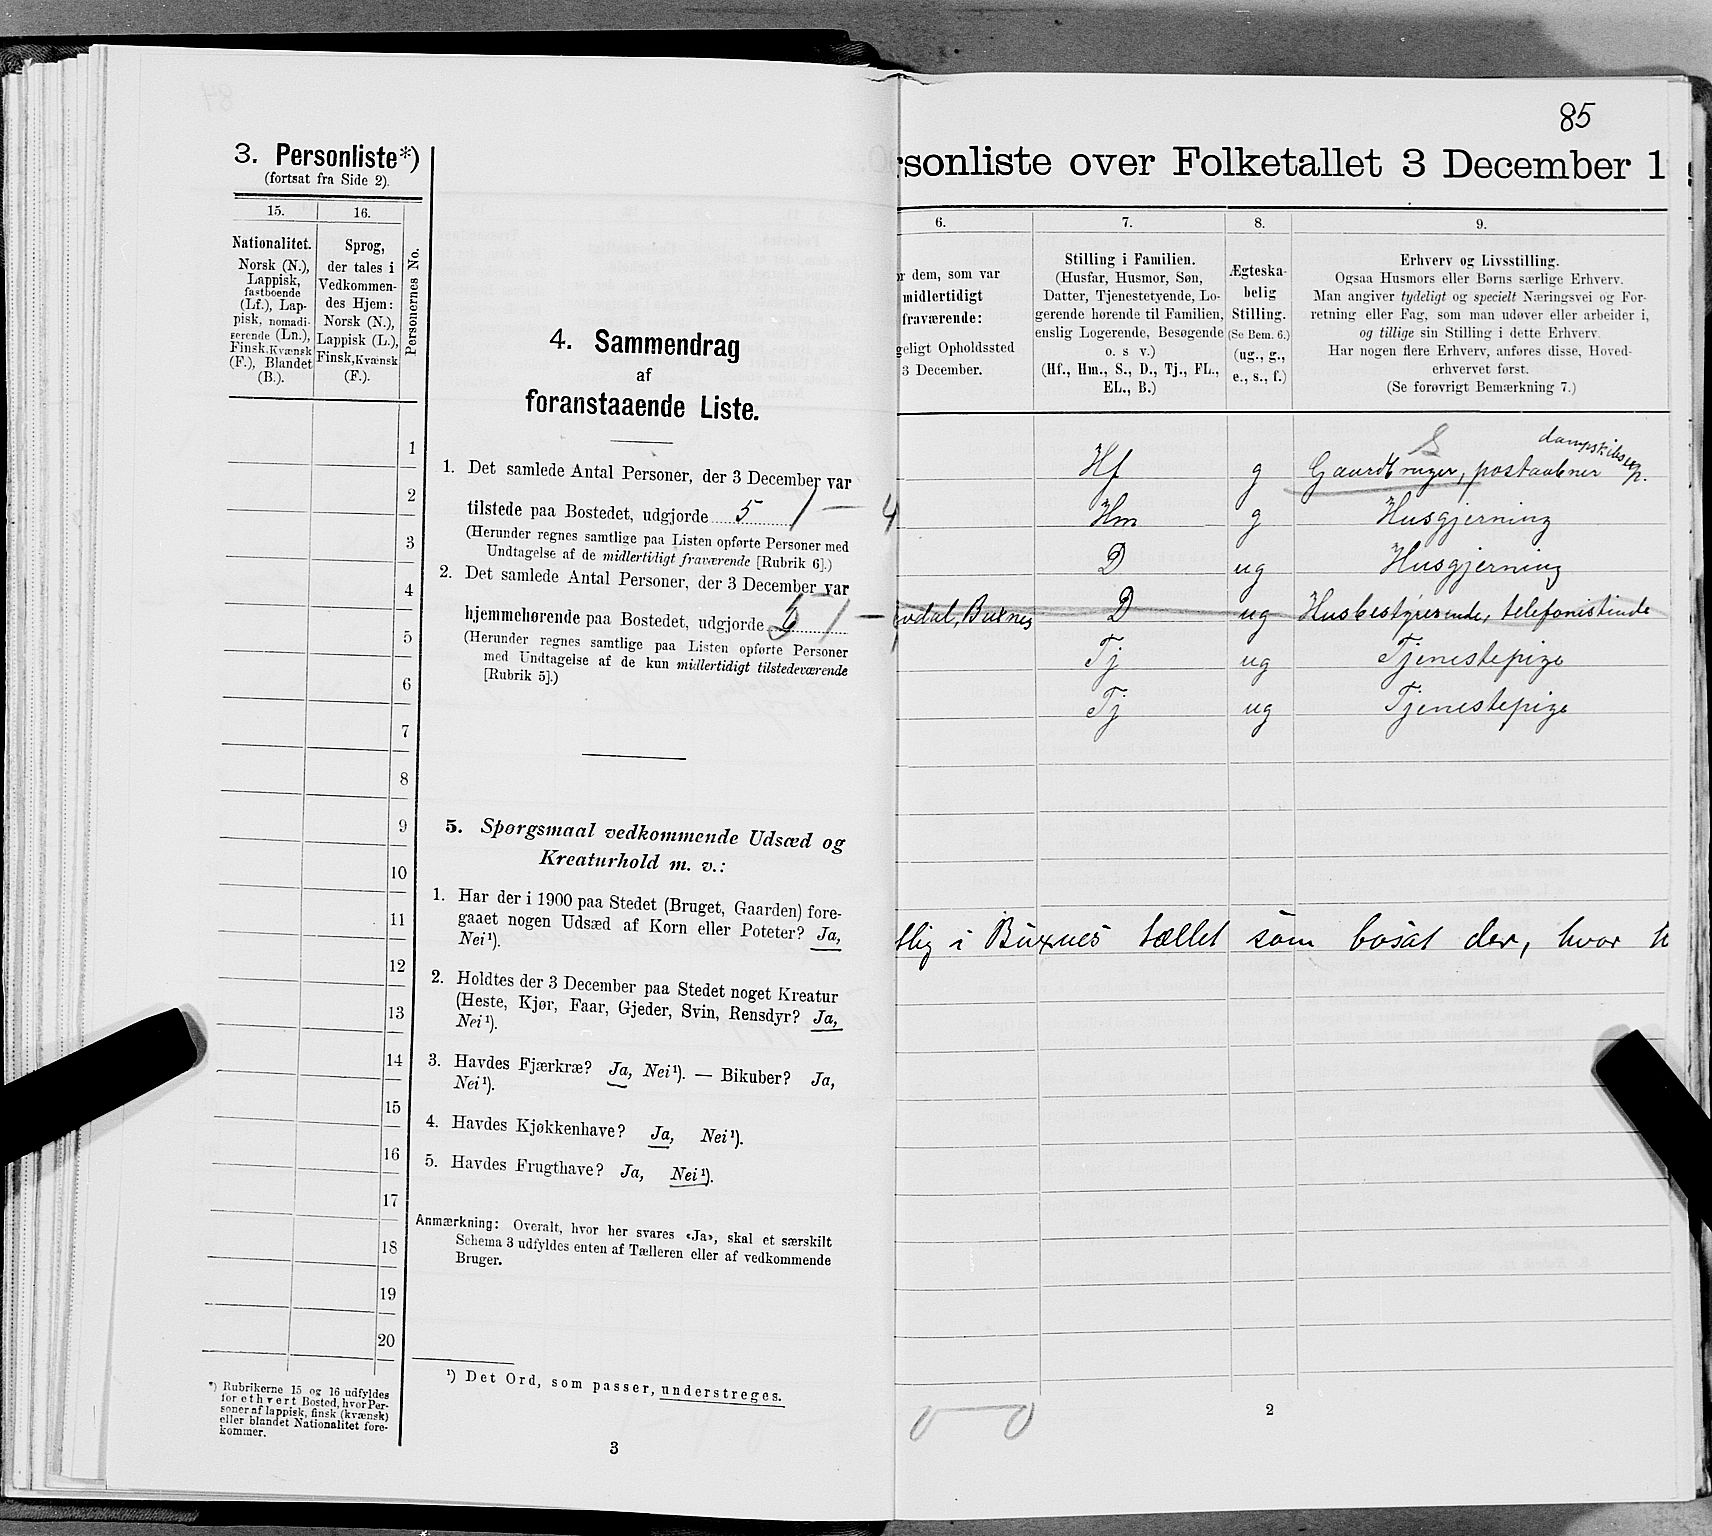 3. Personliste*)
(fortsat fra Side 2).
15.
16.
Personernes No.
Nationalitet.
Norsk (N.),
Lappisk,
fastboende
(Lf.), Lap-
pisk, nomadi-
serende (Ln.),
Finsk, Kvænsk
(F.), Blandet
(B.).
Sprog,
der tales i
Vedkommen-
des Hjem:
Norsk (N.),
Lappisk (L.),
Finsk, Kvænsk
(F.).
1
2
3
4
5
6
7
8
9
10
11
12
13
14
15
16
17
18
19
20
*) Rubrikerne 15 og 16 udfyldes
for ethvert Bosted, hvor Per-
soner af lappisk, finsk (kvænsk)
eller blandet Nationalitet fore-
kommer.
4. Sammendrag
af
foranstaaende Liste.
1. Det samlede Antal Personer, der 3 December var
tilstede paa Bostedet, udgjorde 5 1 — 4
(Herunder regnes samtlige paa Listen opførte Personer med
Undtagelse af de midlertidigt fraværende [Rubrik 6].)
2. Det samlede Antal Personer, der 3 December var
hjemmehørende paa Bostedet, udgjorde 5 1 —
(Herunder regnes samtlige paa Listen opførte Personer
med Undtagelse af de kun midlertidigt tilstedeværende
[Rubrik 5].)
5. Spørgsmaal vedkommende Udsæd og
Kreaturhold m. v.:
1. Har der i 1900 paa Stedet (Bruget, Gaarden) fore-
gaaet nogen Udsæd af Korn eller Poteter? Ja,
Nei¹).
2. Holdtes der 3 December paa Stedet noget Kreatur
(Heste, Kjør, Faar, Gjeder, Svin, Rensdyr? Ja,
Nei¹).
3. Havdes Fjærkræ? Ja, Nei¹). — Bikuber? Ja,
Nei¹).
4. Havdes Kjøkkenhave? Ja, Nei¹).
5. Havdes Frugthave? Ja, Nei¹).
Anmærkning: Overalt, hvor her svares «Ja», skal et særskilt
Schema 3 udfyldes enten af Tælleren eller af vedkommende
Bruger.
¹) Det Ord, som passer, understreges.
3
85
rsonliste over Folketallet 3 December 1
6.
7.
8.
9.
r dem, som var
midlertidigt
fraværende:
geligt Opholdssted
3 December.
Stilling i Familien.
(Husfar, Husmor, Søn,
Datter, Tjenestetyende, Lo-
gerende hørende til Familien,
enslig Logerende, Besøgende
o. s v.)
(Hf., Hm., S., D., Tj., FL.,
EL., B.)
Ægteska-
belig
Stilling.
(Se Bem. 6.)
(ug., g.,
e., s., f.)
Erhverv og Livsstilling.
Ogsaa Husmors eller Børns særlige Erhverv.
Man angiver tydeligt og specielt Næringsvei og For-
retning eller Fag, som man udøver eller arbeider i,
og tillige sin Stilling i dette Erhverv.
Har nogen flere Erhverv, anføres disse, Hoved-
erhvervet først.
(Se forøvrigt Bemærkning 7.)
S dampskibsexp.
Hf g Gaardbruger, postaabner
Hm g Husgjerning
D ug Husgjerning
vdal, Buxnes D ug Husbestyrende, telefonistinde
Tj ug Tjenestepige
Tj ug Tjenestepige
tlig i Buxnes tællet som bosat der, hvor h
0 — 0
2